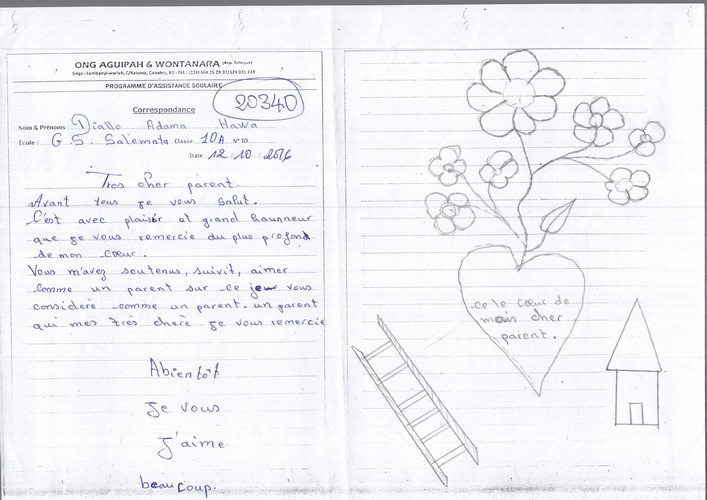 ONG AGUIPAH & WONTANARA
PROGRAMME D'ASSISTANCE SCOLAIRE
Correspondance
20340
Nom & Prénoms : Diallo Adama Hawa
Ecole : G.S. Salemata Classe 10A N° ID
Date 12 10 2016
Très cher parent.
Avant tous je vous Salut.
C'est avec plaisir et grand haunneur
que je vous remercie du plus profond
de mon cœur.
Vous m'avez soutenus, suivit, aimer
comme un parent sur ce vous
considère comme un parent. un parent
qui mes très chère je vous remercie
Abientôt
Je vous
J'aime
beaucoup.
ce le cœur de
mais cher
parient.